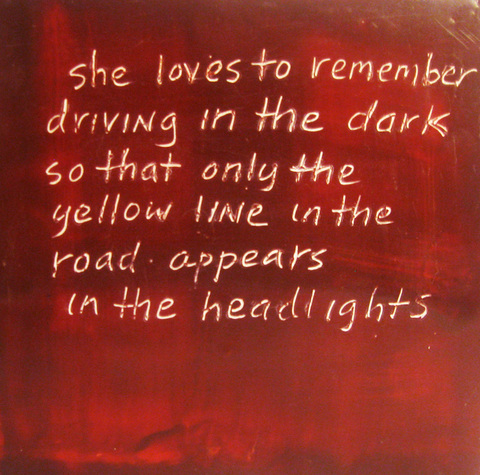 she loves to remember
driving in the dark
so that only the
yellow line in the
road. appears
in the headlights